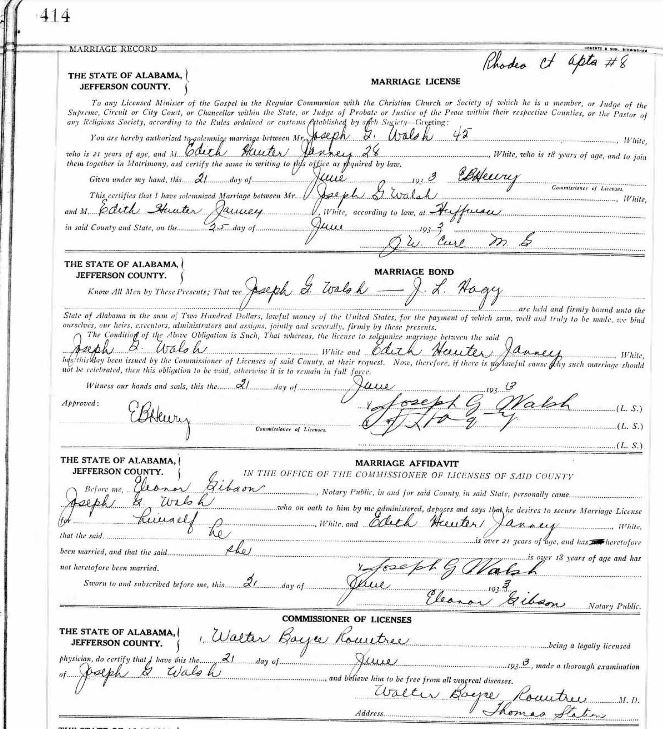 414
MARRIAGE RECORD
Rhodea Ct Apta #8
THE STATE OF ALABAMA,
JEFFERSON COUNTY.
MARRIAGE LICENSE
To any Licensed Minister of the Gospel in the Regular Communion with the Christian Church or Society of which he is a member, or Judge of the
Supreme, Circuit or City Court, or Chancellor within the State, or Judge of Probate or Justice of the Peace within their respective Counties, or the Pastor of
any Religious Society, according to the Rules ordained or customs established by such Society—Greeting:
You are hereby authorized to solemnize marriage between Mr. Joseph G. Walsh 45, White,
who is 21 years of age, and M Edith Hunter Janney 28 White, who is 18 years of age, and to join
them together in Matrimony, and certify the same in writing to this office as required by law.
Given under my hand, this 21 day of June 193 3 EBHenry
Commissioner of Licenses.
This certifies that I have solemnized Marriage between Mr. Joseph G Walsh, White,
and M. Edith Hunter Janney, White, according to law, at Huffman
in said County and State, on the 25 day of June 193 3
J W Curl M G
THE STATE OF ALABAMA,
JEFFERSON COUNTY.
MARRIAGE BOND
Know All Men by These Presents; That we Joseph G. Walsh — J. L. Hagy
are held and firmly bound unto the
State of Alabama in the sum of Two Hundred Dollars, lawful money of the United States, for the payment of which sum, well and truly to be made, we bind
ourselves, our heirs, executors, administrators and assigns, jointly and severally, firmly by these presents.
The Condition of the Above Obligation is Such, That whereas, the license to solemnize marriage between the said
Joseph G. Walsh White and Edith Hunter Janney White,
has this day been issued by the Commissioner of Licenses of said County, at their request. Now, therefore, if there is no lawful cause why such marriage should
not be celebrated, then this obligation to be void, otherwise it is to remain in full force.
Witness our hands and seals, this the 21 day of June 193 3
Approved:
x Joseph G Walsh (L. S.)
EBHenry
Commissioner of Licenses.
(L. S.)
(L. S.)
THE STATE OF ALABAMA,
JEFFERSON COUNTY.
MARRIAGE AFFIDAVIT
IN THE OFFICE OF THE COMMISSIONER OF LICENSES OF SAID COUNTY
Before me, Eleanor Gibson, Notary Public, in and for said County, in said State, personally came
Joseph G Walsh who on oath to him by me administered, deposes and says that he desires to secure Marriage License
for himself, White, and Edith Hunter Janney White,
that the said he is over 21 years of age, and has heretofore
been married, and that the said she is over 18 years of age and has
not heretofore been married.
x Joseph G Walsh
Sworn to and subscribed before me, this 21 day of June 193 3
Eleanor Gibson Notary Public.
COMMISSIONER OF LICENSES
THE STATE OF ALABAMA,
JEFFERSON COUNTY.
I, Walter Boyce Rountree being a legally licensed
physician, do certify that I have this the 21 day of June 193 3, made a thorough examination
of Joseph G Walsh and believe him to be free from all venereal diseases.
Walter Boyce Rountree M. D.
Address Thomas Station